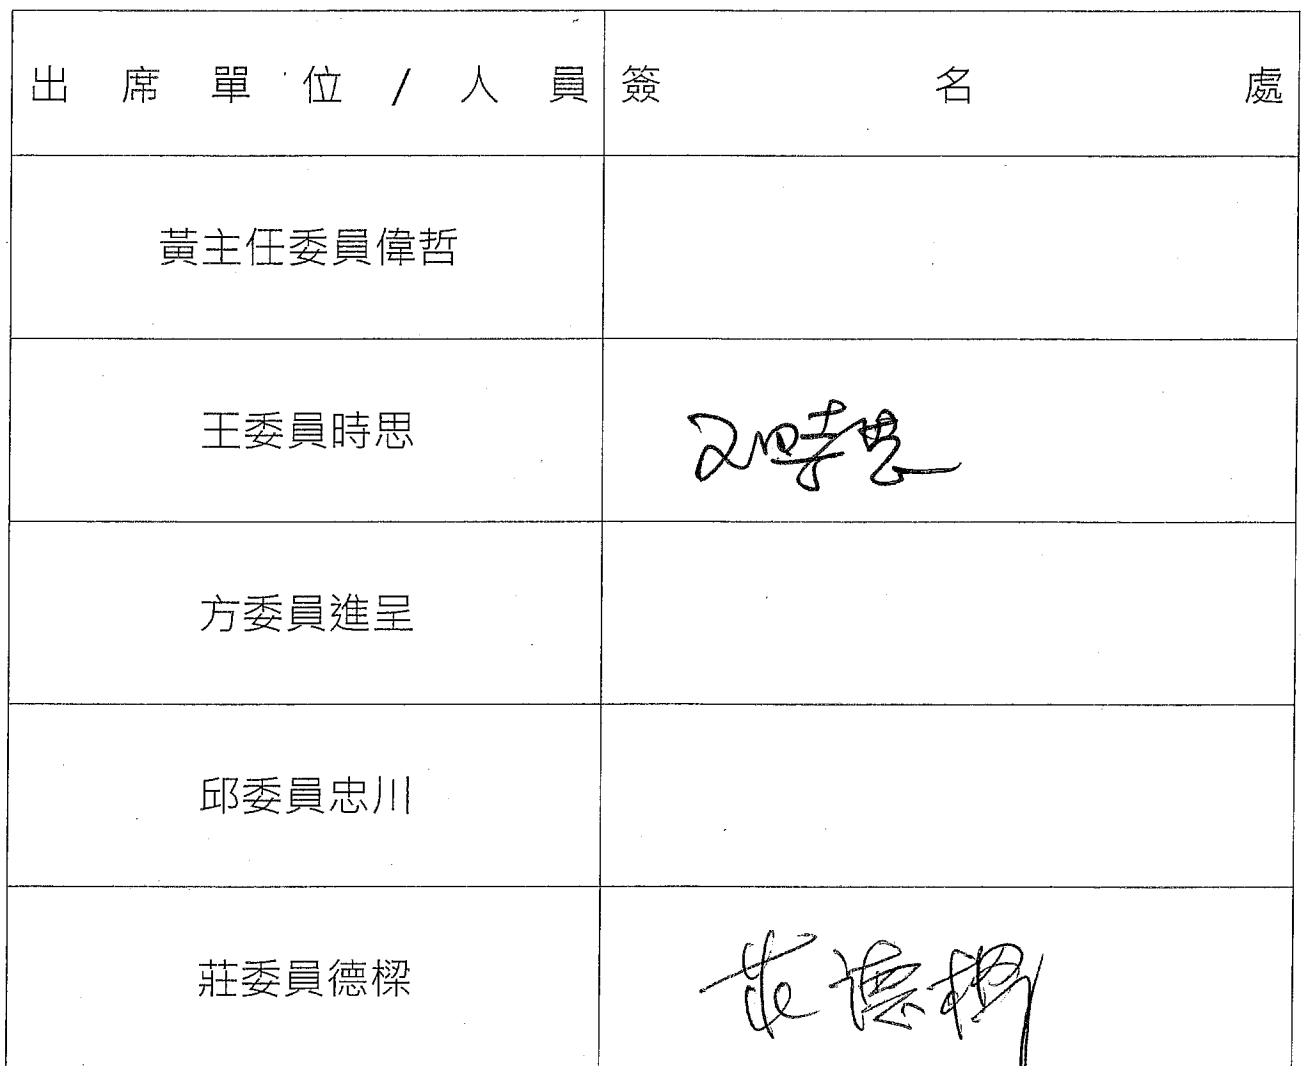 出席單位/人員 簽名處
黃主任委員偉哲
王委員時思 王時思
方委員進呈
邱委員忠川
莊委員德樑 莊德樑